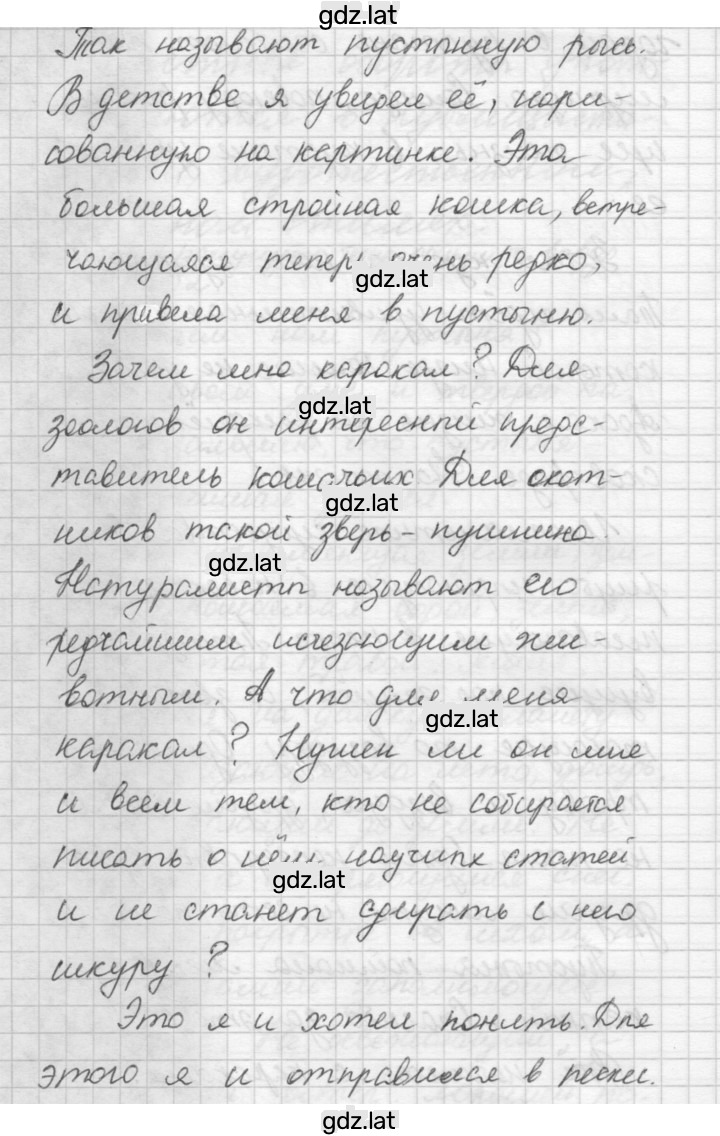 gdz.lat
Так называют пустынную рысь.
В детстве я увидел её, нари-
сованную на картинке. Эта
большая стройная кошка, встре-
чающаяся теперь очень редко,
gdz.lat
и привела меня в пустыню.
Зачем мне каракал? Для
gdz.lat
зоологов он интересный предс-
тавитель кошачьих Для охот-
gdz.lat
ников такой зверь – пушнина.
gdz.lat
Натуралисты называют его
редчайшим исчезающим жи-
вотным. А что для меня
gdz.lat
каракал? Нужен ли он мне
и всем тем, кто не собирается
писать о нём научных статей
gdz.lat
и не станет сдирать с него
шкуру?
Это я и хотел понять. Для
этого я и отправился в пески.
gdz.lat